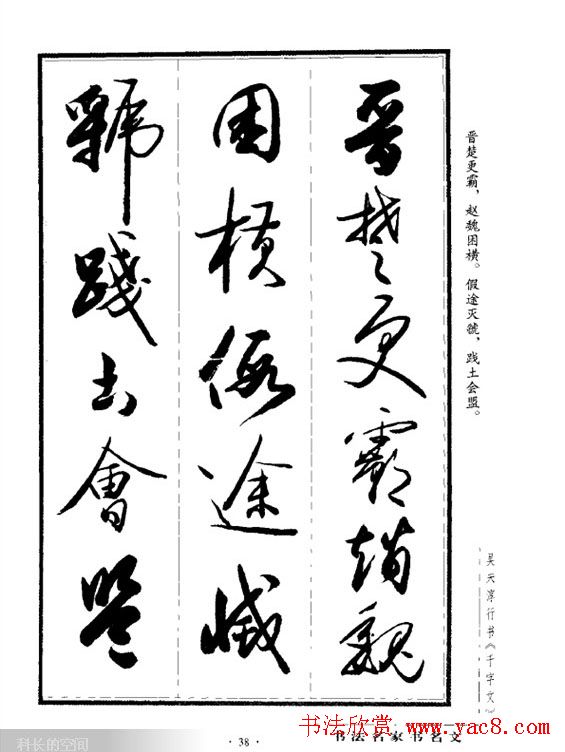 晋楚更霸趙魏
困橫假途滅
虢踐土會盟
晋楚更霸，赵魏困横。假途灭虢，践土会盟。
吴天淳行书《千字文》
书法名家书名文
·38·
书法欣赏 www.yac8.com
科长的空间